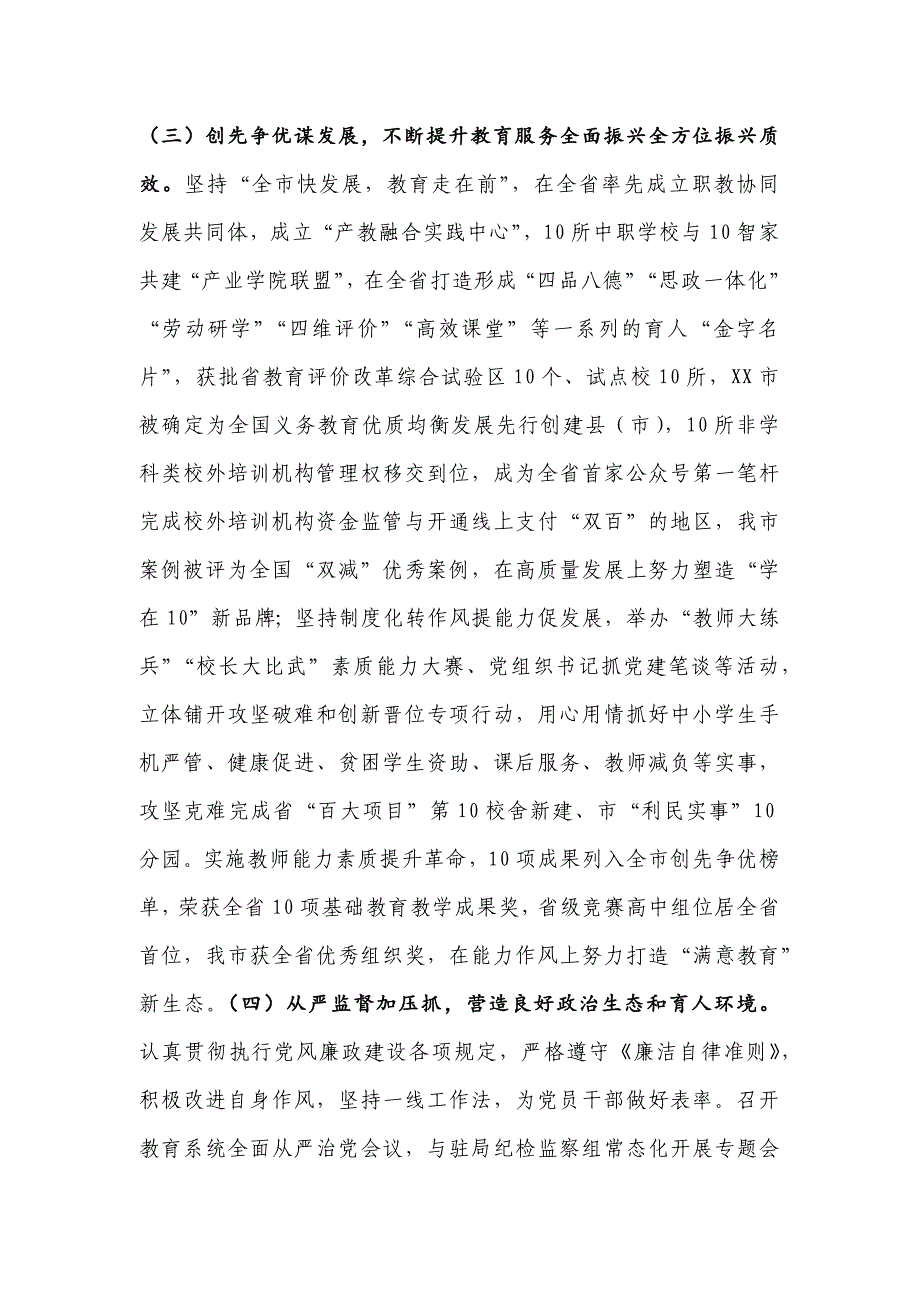 （三）创先争优谋发展，不断提升教育服务全面振兴全方位振兴质
效。坚持“全市快发展，教育走在前”，在全省率先成立职教协同
发展共同体，成立“产教融合实践中心”，10所中职学校与10智家
共建“产业学院联盟”，在全省打造形成“四品八德”“思政一体化”
“劳动研学”“四维评价”“高效课堂”等一系列的育人“金字名
片”，获批省教育评价改革综合试验区10个、试点校10所，XX市
被确定为全国义务教育优质均衡发展先行创建县（市），10所非学
科类校外培训机构管理权移交到位，成为全省首家公众号第一笔杆
完成校外培训机构资金监管与开通线上支付“双百”的地区，我市
案例被评为全国“双减”优秀案例，在高质量发展上努力塑造“学
在10”新品牌；坚持制度化转作风提能力促发展，举办“教师大练
兵”“校长大比武”素质能力大赛、党组织书记抓党建笔谈等活动，
立体铺开攻坚破难和创新晋位专项行动，用心用情抓好中小学生手
机严管、健康促进、贫困学生资助、课后服务、教师减负等实事，
攻坚克难完成省“百大项目”第10校舍新建、市“利民实事”10
分园。实施教师能力素质提升革命，10项成果列入全市创先争优榜
单，荣获全省10项基础教育教学成果奖，省级竞赛高中组位居全省
首位，我市获全省优秀组织奖，在能力作风上努力打造“满意教育”
新生态。（四）从严监督加压抓，营造良好政治生态和育人环境。
认真贯彻执行党风廉政建设各项规定，严格遵守《廉洁自律准则》，
积极改进自身作风，坚持一线工作法，为党员干部做好表率。召开
教育系统全面从严治党会议，与驻局纪检监察组常态化开展专题会